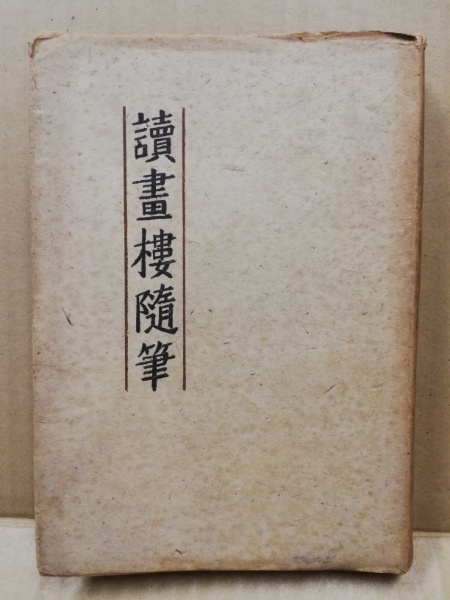 讀畫樓隨筆